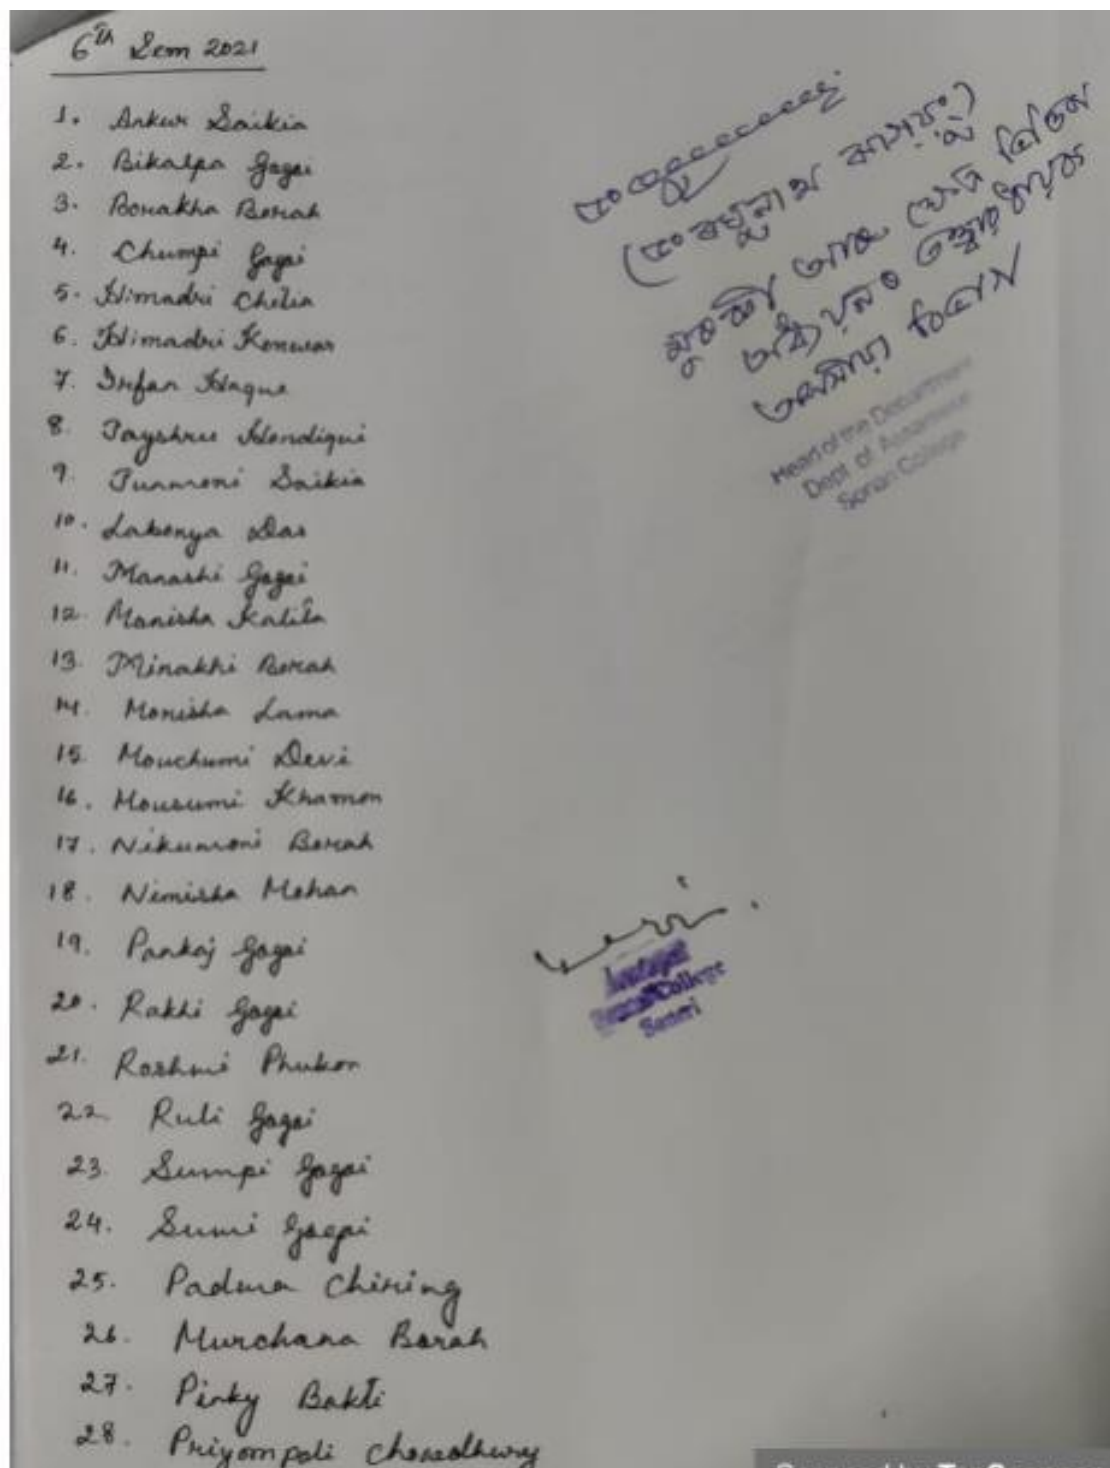 6th Sem 2021
1. Ankur Saikia
2. Bikalpa Gogoi
3. Borakha Borah
4. Chumpi Gogoi
5. Himadri Chetia
6. Himadri Konwar
7. Irfan Haque
8. Jayshree Hendique
9. Junmoni Saikia
10. Labonya Das
11. Manashi Gogoi
12. Manisha Kalita
13. Minakhi Borah
14. Monisha Lama
15. Mouchumi Devi
16. Mousumi Khamon
17. Nikumoni Borah
18. Nimisha Mohan
19. Pankaj Gogoi
20. Rakhi Gogoi
21. Roshmi Phukon
22. Ruli Gogoi
23. Sumpi Gogoi
24. Sumi Gogoi
25. Padma Chiring
26. Murchana Borah
27. Pinky Bakti
28. Priyompoli Chowdhury
মুৰব্বী আৰু
অসমীয়া বিভাগ
Head of the Department
Dept of Assamese
Sonari College
Sonari College
Sonari